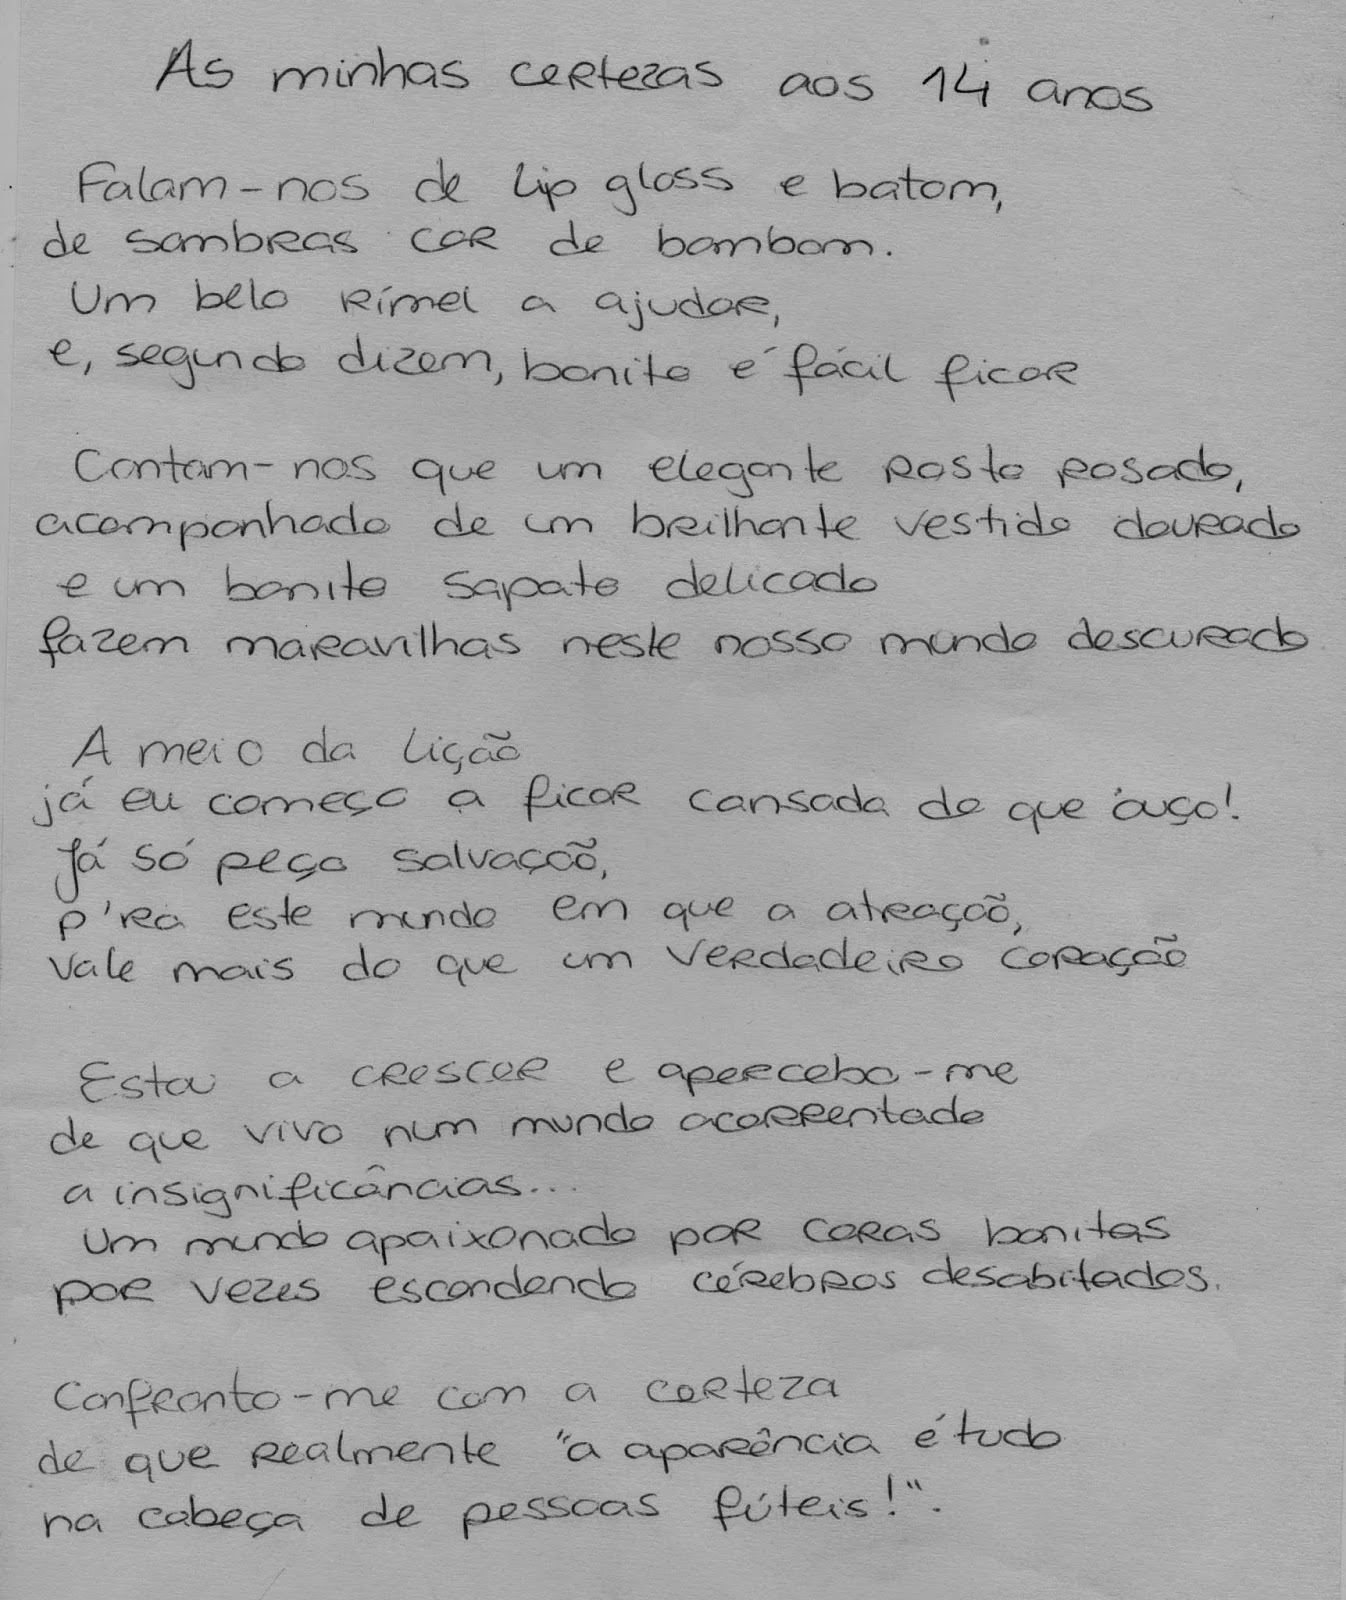 As minhas certezas aos 14 anos
Falam-nos de lip gloss e batom,
de sombras cor de bombom.
Um belo rímel a ajudar,
e, segundo dizem, bonito é fácil ficar
Contam-nos que um elegante rosto rosado,
acompanhado de um brilhante vestido dourado
e um bonito sapato delicado
fazem maravilhas neste nosso mundo descurado
A meio da lição
já eu começo a ficar cansada do que ouço!
Já só peço salvação,
p'ra este mundo em que a atração,
vale mais do que um verdadeiro coração
Estou a crescer e apercebo-me
de que vivo num mundo acorrentado
a insignificâncias...
Um mundo apaixonado por caras bonitas
por vezes escondendo cérebros desabitados.
Confronto-me com a certeza
de que realmente "a aparência é tudo
na cabeça de pessoas fúteis!".